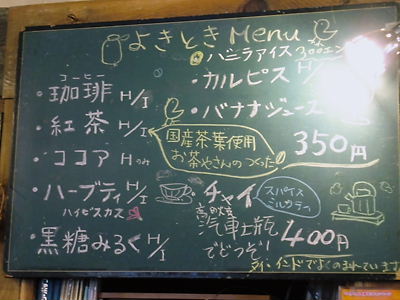 よきとき Menu
バニラアイス 300エン
コーヒー
・珈琲 H/I
・紅茶 H/I
・ココア Hのみ
・ハーブティ H/I
ハイビスカス
・黒糖みるく H/I
・カルピス H/I
・バナナジュース
国産茶葉使用
お茶やさんのつくった
350円
・チャイ
スパイス
ミルクティ
汽車土瓶
でどうぞ!
400円
インドでよくのまれています